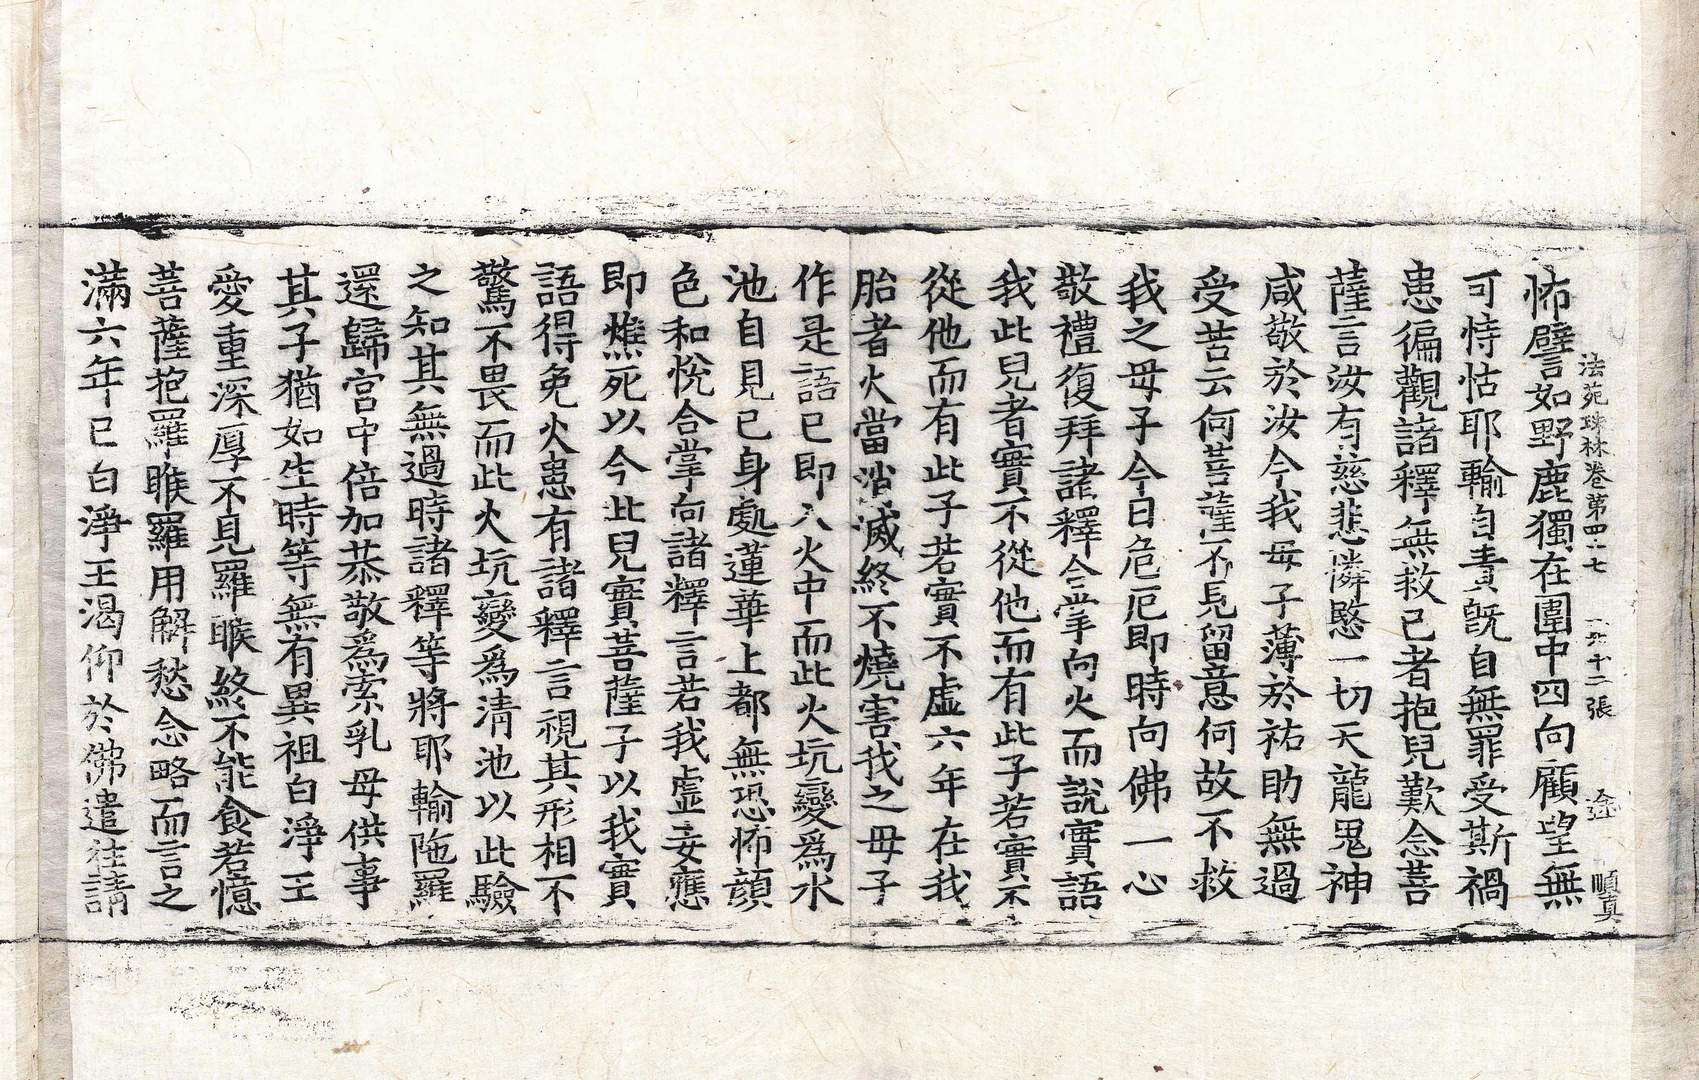 法苑珠林卷第四十七 第十二張 途 順真
怖譬如野鹿獨在圍中四向顧望無
可恃怙耶輸自責旣自無罪受斯禍
患徧觀諸釋無救己者抱兒歎念菩
薩言汝有慈悲憐愍一切天龍鬼神
咸敬於汝今我母子薄於祐助無過
受苦云何菩薩不見留意何故不救
我之母子今日危厄即時向佛一心
敬禮復拜諸釋合掌向火而說實語
我此兒者實不從他而有此子若實不
從他而有此子若實不虛六年在我
胎者火當消滅終不燒害我之母子
作是語已即入火中而此火坑變爲水
池自見己身處蓮華上都無恐怖顔
色和悅合掌向諸釋言若我虛妄應
即燋死以今此兒實菩薩子以我實
語得免火患有諸釋言視其形相不
驚不畏而此火坑變爲清池以此驗
之知其無過時諸釋等將耶輸陁羅
還歸宮中倍加恭敬爲索乳母供事
其子猶如生時等無有異祖白淨王
愛重深厚不見羅睺終不能食若憶
菩薩抱羅睺羅用解愁念略而言之
滿六年已白淨王渴仰於佛遣往請